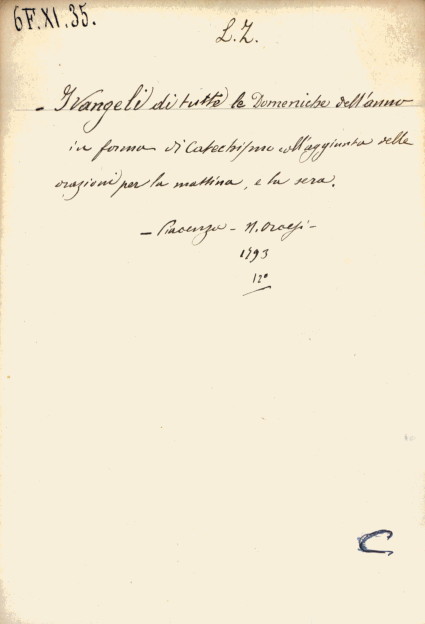 6F.XI.35.
L.Z.
- I Vangeli di tutte le Domeniche dell'anno
in forma di Catechismo coll'aggiunta delle
orazioni per la mattina, e la sera.
- Piacenza - N. Orcesi -
1793
12°
C